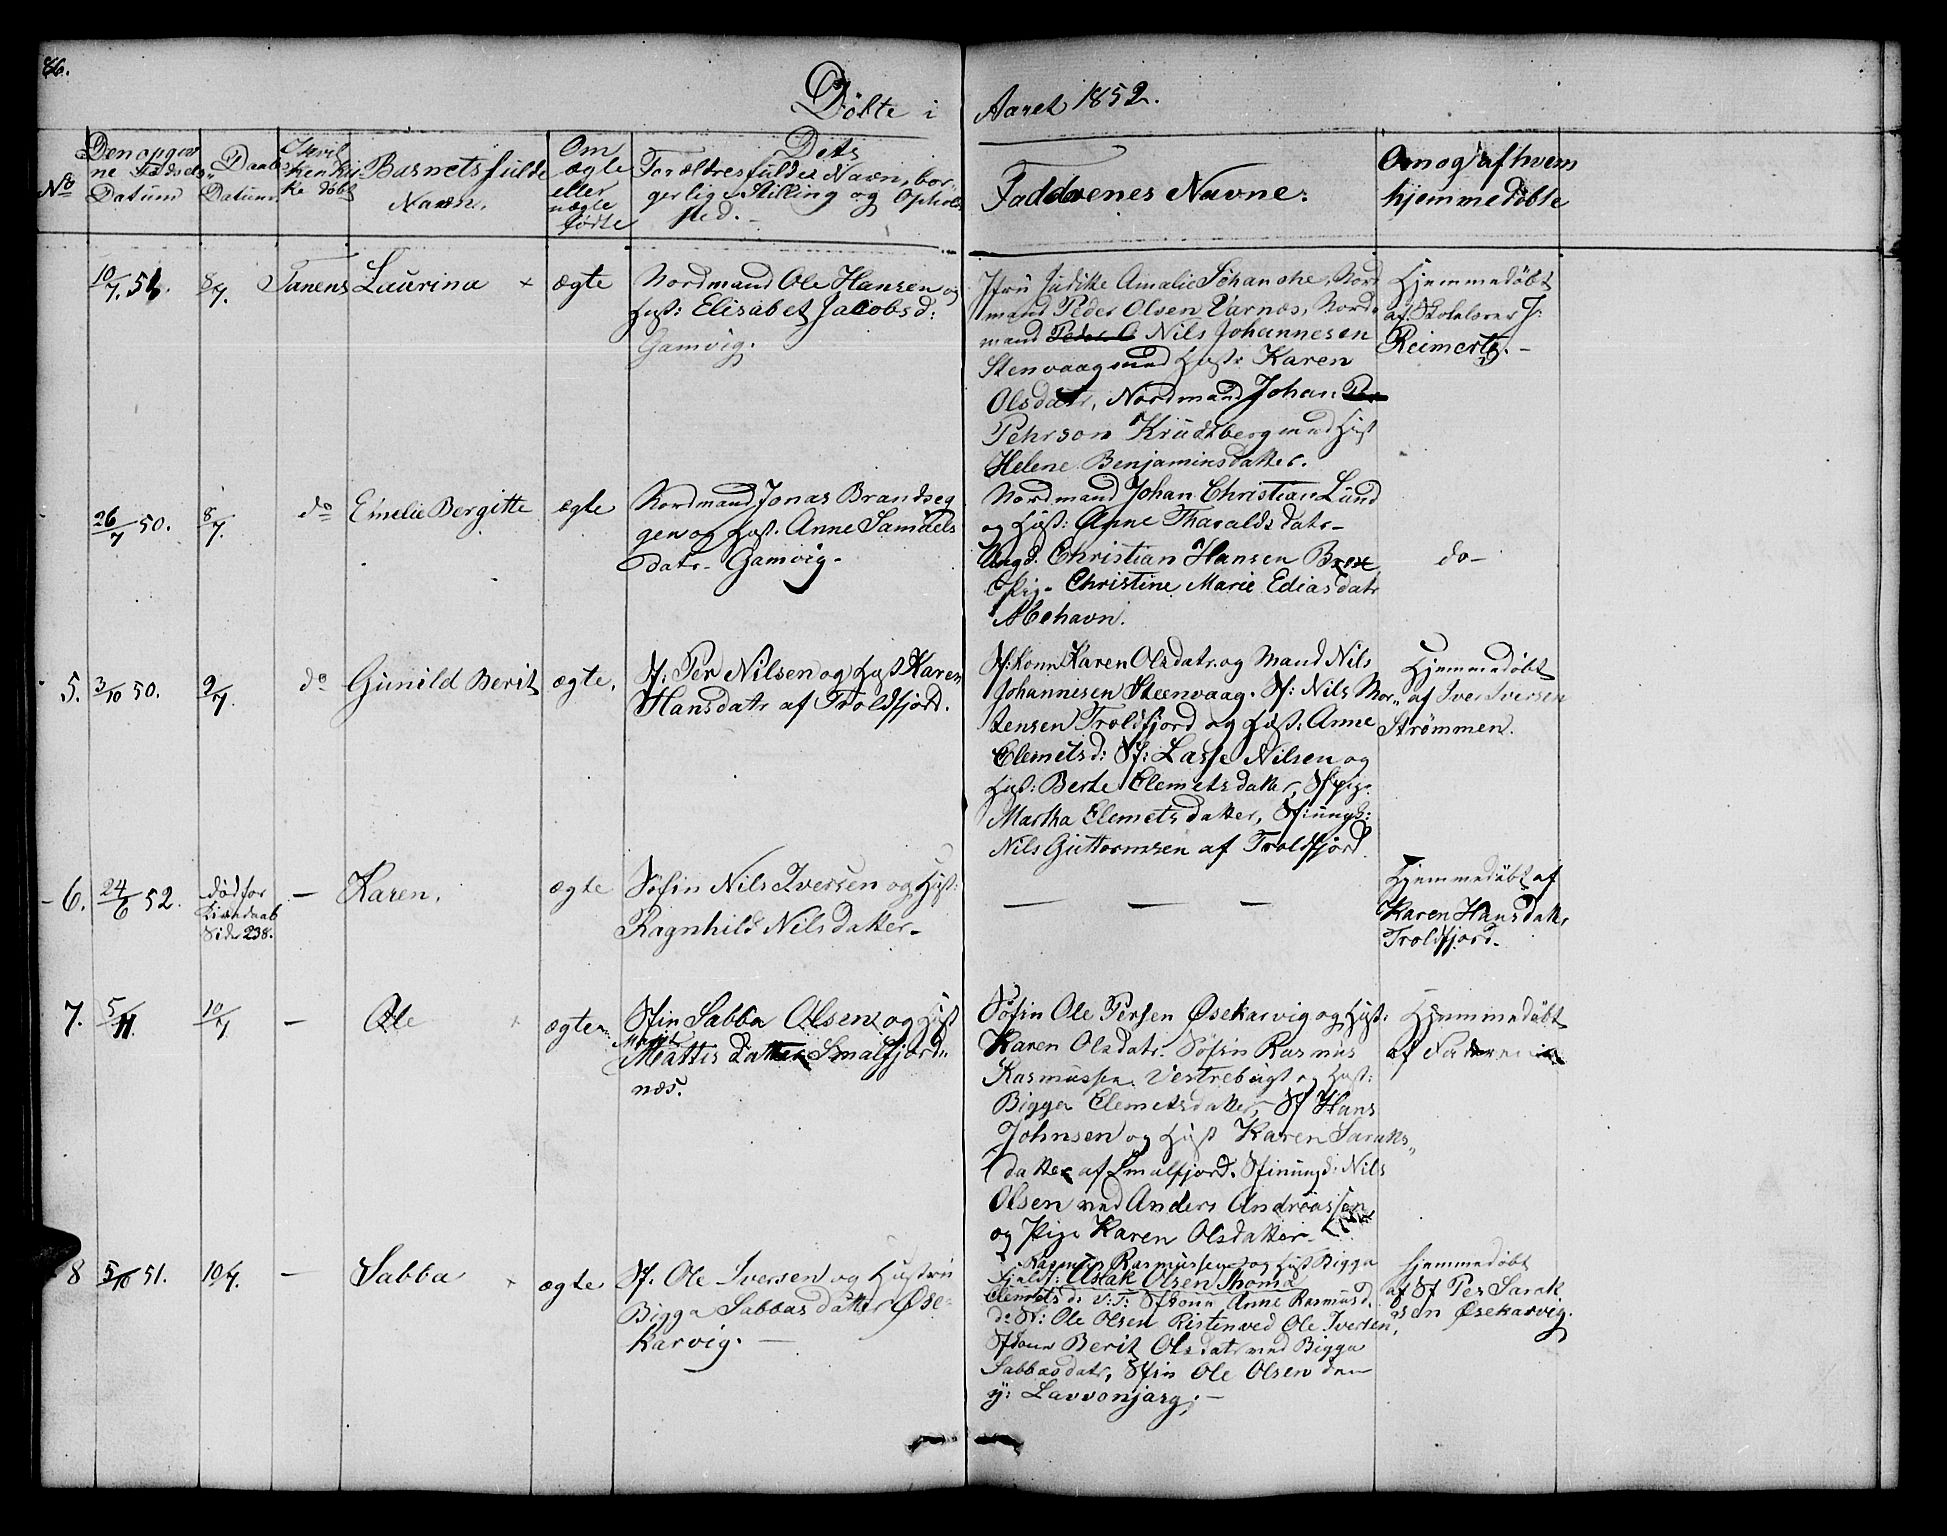 86.
Döbte i Aaret 1852.
No
Den opgiv
ne Fødsels
Datum
Daabs
Datum
I hvil
ken Kir
ke døbt
Barnets fulde
Navn.
Om
ægte
eller
uægte
fødte
Dets
Forældres fulde Navn, bor
gerlig Stilling og Opholds
sted.
Faddernes Navne.
Om og af hvem
hjemmedöbte
10/7. 51.
8/7.
Tanens
Laurina
ægte
Nordmand Ole Hansen og
Hust: Elisabet Jacobsd:
Gamvig.
Jfru Amalie Schanche, Nord
mand Peder Olsen Varnæs, Nord-
mand Nils Johannesen
Stenvaag med Hustr Karen
Olsdatr, Nordmand Johan
Pehrson Krudtberg med Hust
Helene Benjaminsdatter.
Hjemmedøbt
af Skolelærer J:
Reimertz. -
26/7 50.
8/7.
do
Emelie Bergitte
ægte
Nordmand Jonas Brandseg
gen og Hust. Anne Samuels
datr. Gamvig.
Nordmand Johan Christian Lund
og Hust: Anne Tharaldsdatr -
Ungd. Christian Hansen
Christine Marie Ediasdatr
Mehavn.
do -
5.
3/10 50.
9/7.
do
Gunild Berit
ægte.
Sf: Per Nilsen og Hust Karen
Hansdatr af Troldfjord.
Sf:konn Karen Olsdatr. og Mand Nils
Johannesen Steenvaag. Sf: Nils Mor-
tensen Troldfjord og Hust: Anne
Clemetsd: Sf: Lasse Nilsen og
Hust: Berte Clemetsdatter, Sfpig.
Martha Clemetsdatter, Sf:ungk:
Nils Guttormsen af Troldfjord.
Hjemmedøbt
af Iver Iversen
Strømmen.
6.
24/6 52.
død før
Daab
Side 238.
-
Karen.
ægte
Søfin Nils Iversen og Hust:
Ragnhild Nilsdatter.
— — —
Hjemmedøbt af
Karen Hansdatter
Troldfjord.
7.
5/11.
10/7
-
Ole
ægte
Sfin Sabba Olsen og Hust
Marit
Mattisdatter Smalfjord-
næs.
Søfin Ole Persen Øsekarvig og Hust:
Karen Olsdatr. Søfin Rasmus
Rasmussen Vestrebugt og Hust:
Bigga Clemetsdatter, Sf Hans
Johnsen og Hust Karen Saraks-
datter af Smalfjord. Sfinungd: Nils
Olsen med Anders Andreassen
og Pige Karen Olsdatter
Hjemmedøbt
af Faderen
8
5/10 51.
10/7.
-
Sabba
ægte
Sf. Ole Iversen og Hustru
Bigga Sabbasdatter Øse-
karvig. —
Rasmus Rasmussen og Hust Bigga
Fjeldf: Aslak Olsen Thoma
Clemetsd: V:T: Sfkonn Anne Rasmusd.
do Sf: Ole Olsen Risten ved Ole Iversen,
Sfkonn Berit Olsdatr med Bigga
Sabbasdatr, Sfin Ole Olsen den
y: Lavvonjarg. -
Hjemmedøbt
af Sf Per Sarak
sen Øsekarvig.